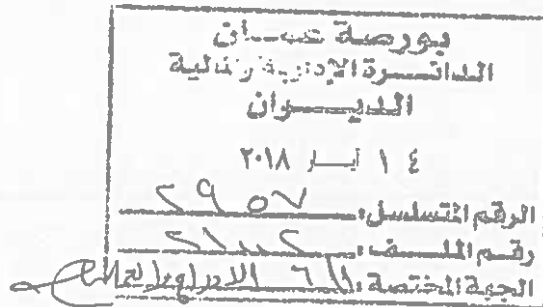 بورصة عمــان
الدائــرة الإدارية والمالية
الديـــوان
١٤ أيــار ٢٠١٨
الرقم المتسلسل: ٢٩٥٧
رقــم الملــف:
الجهة المختصة: